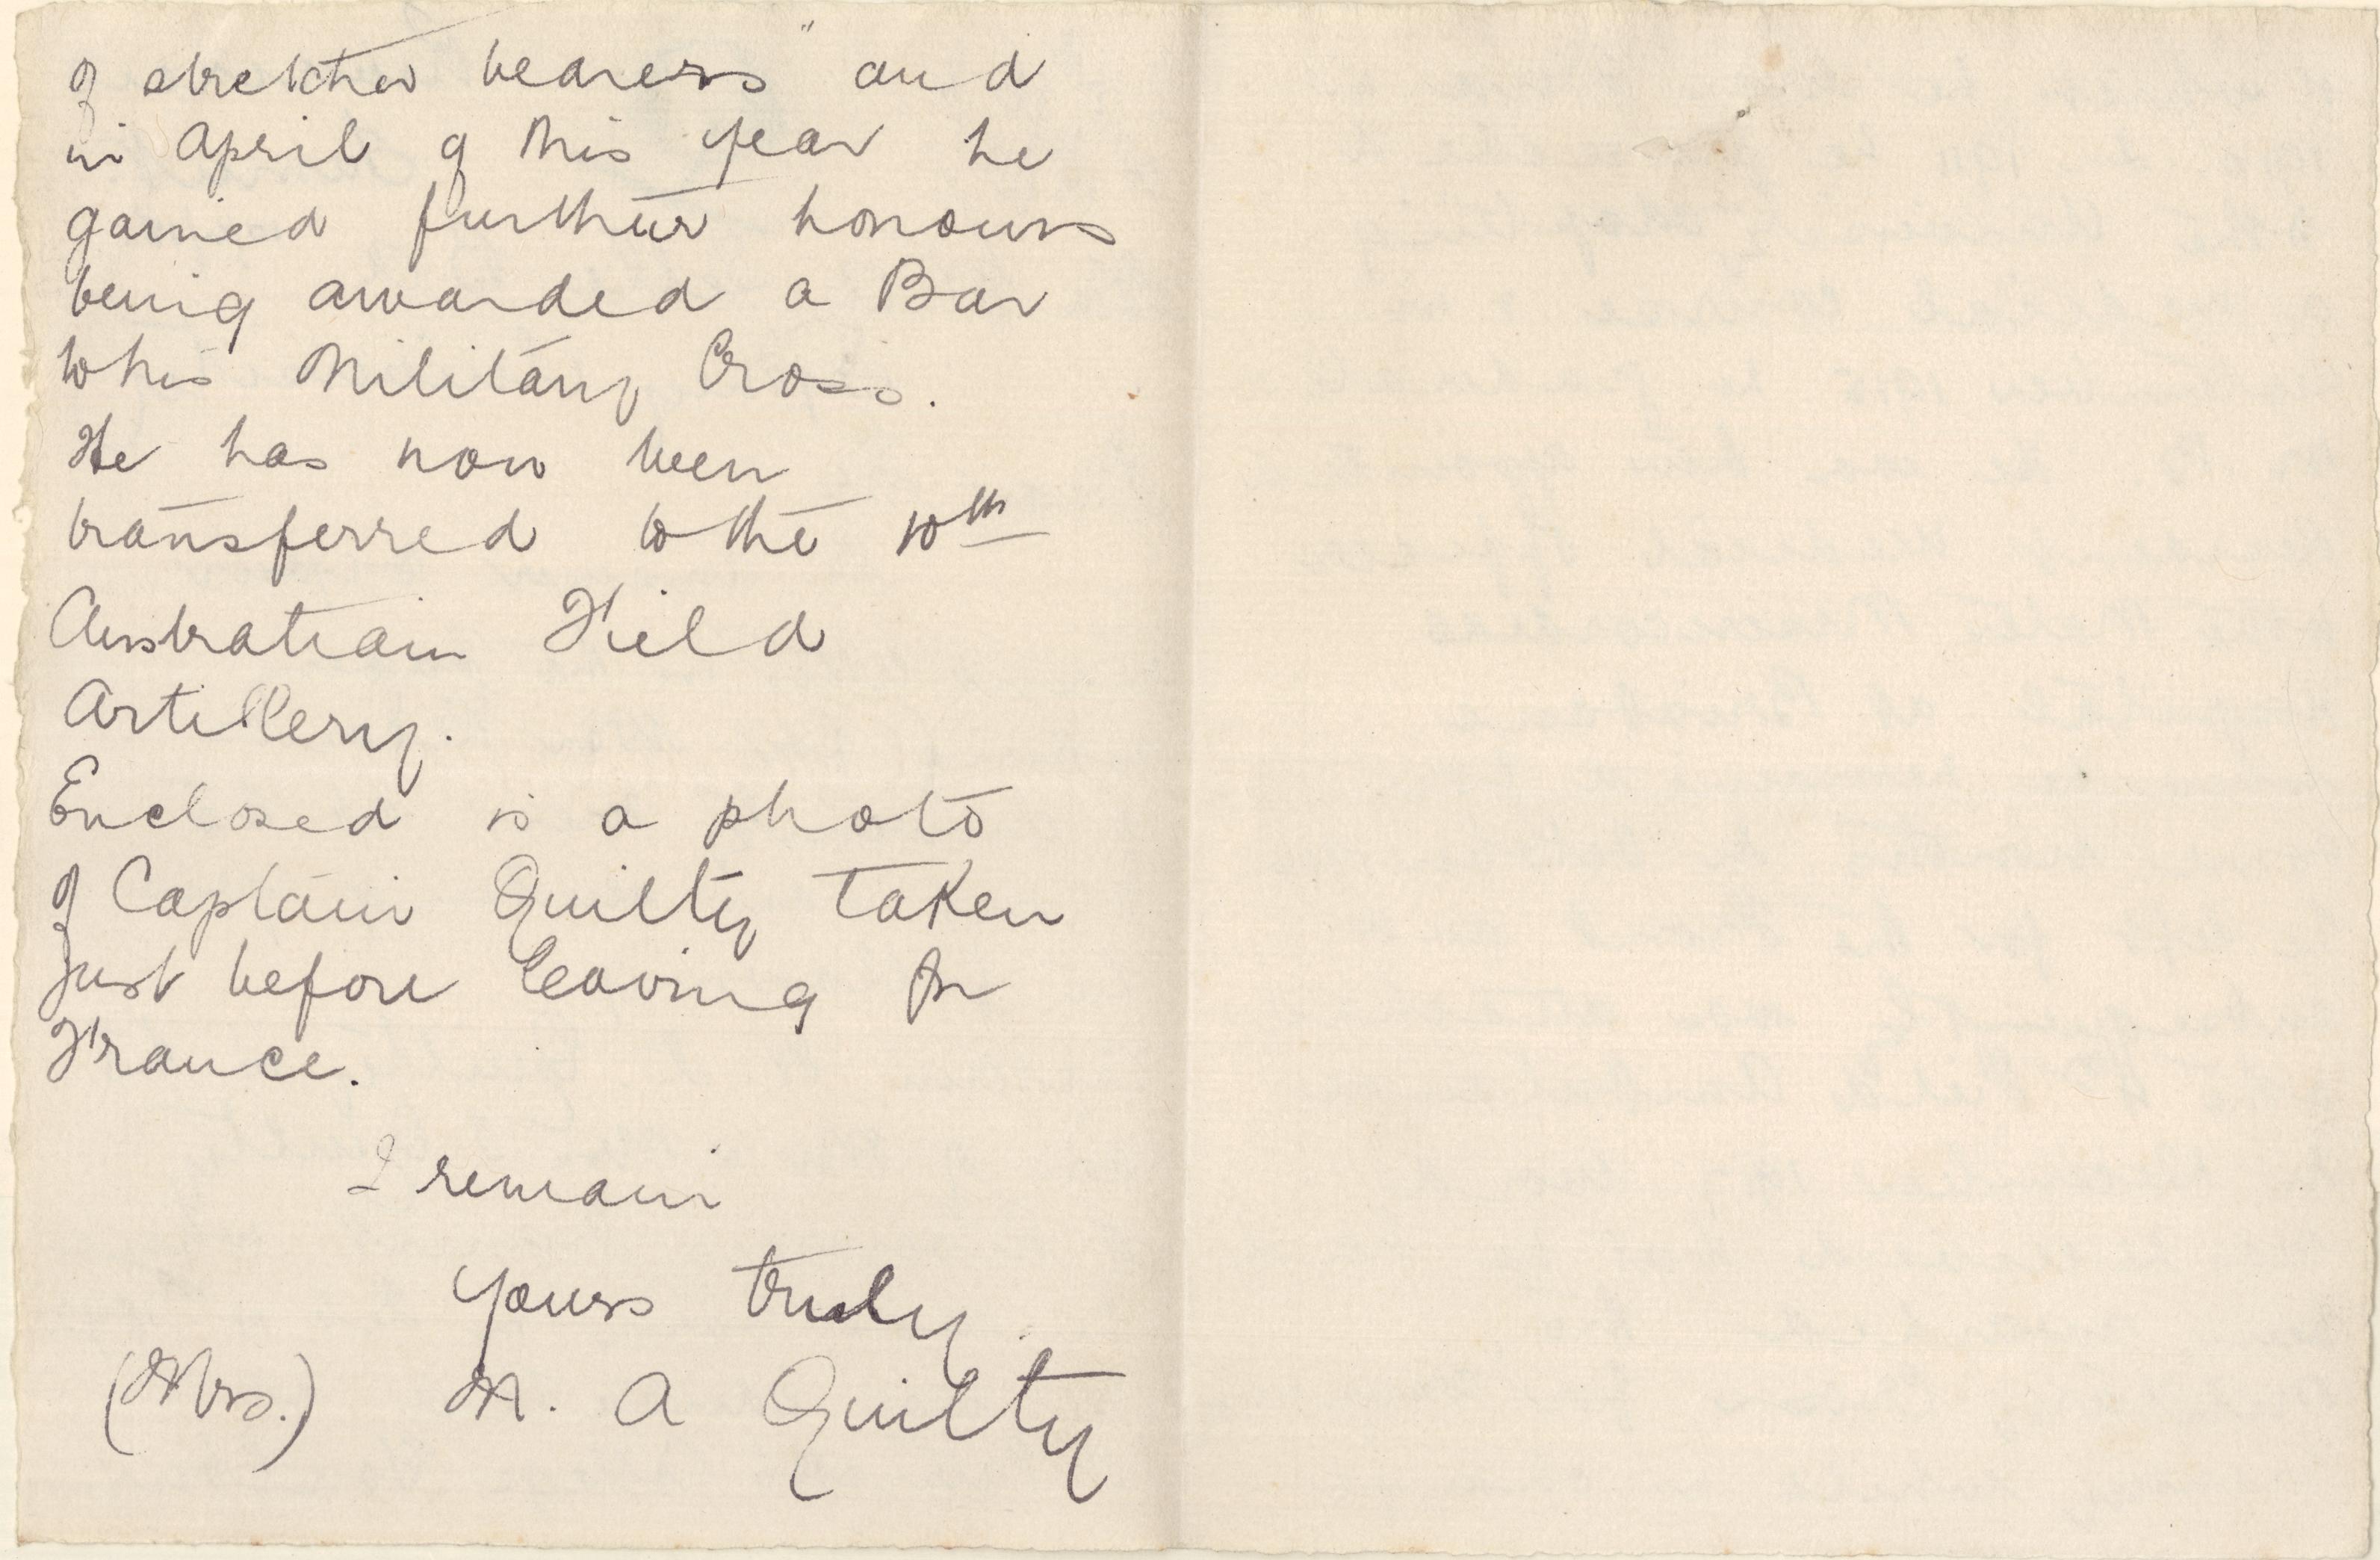 of stretcher bearers" and
in April of this year he
gained further honours
being awarded a Bar
to his Military Cross.
He has now been
transferred to the 10th
Australian Field
Artillery.
Enclosed is a photo
of Captain Quilty taken
just before leaving for
France.
I remain
Yours truly
(Mrs.) M. A Quilty